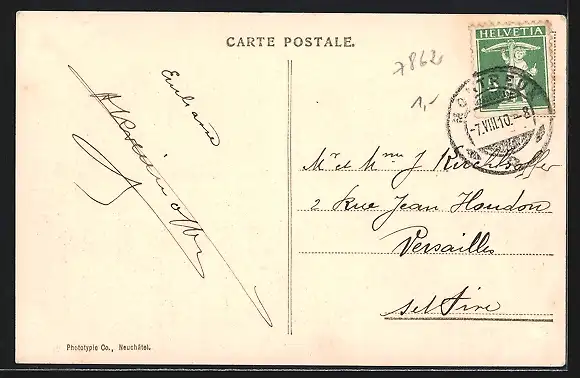 CARTE POSTALE.
HELVETIA
7862
1,-
MONTREUX
-7.VIII.10.-8
Mr et Mme J Kirchhoffer
2 Rue Jean Houdon
Versailles
Set Oise
Phototypie Co., Neuchâtel.